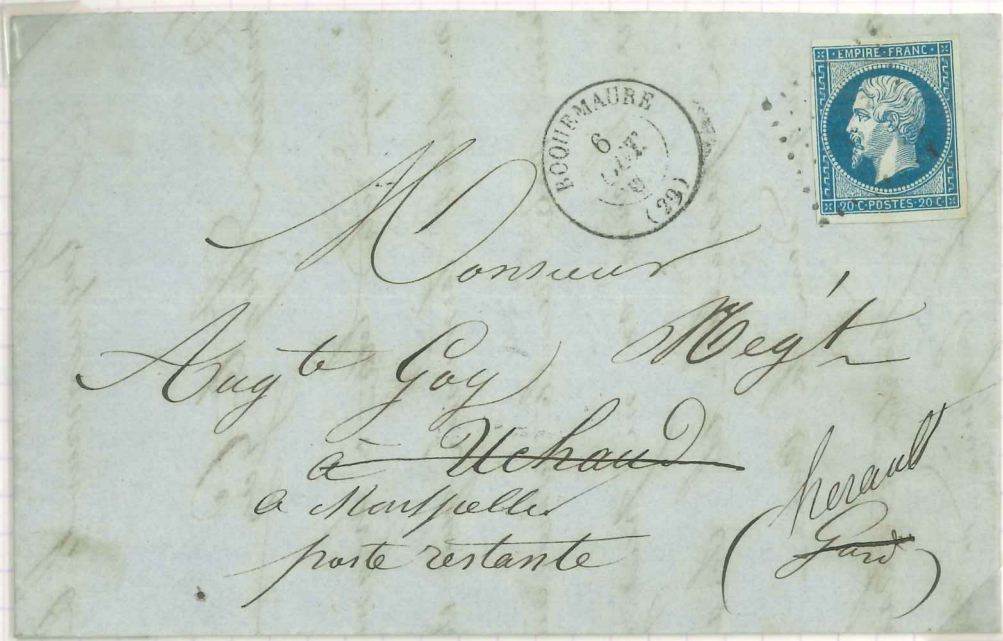 EMPIRE·FRANC·
20·C·POSTES·20·C
ROQUEMAURE
6
(29)
Monsieur
Augte Goy Negt
à Uchaud
a Montpellier
poste restante
herault
(Gard)